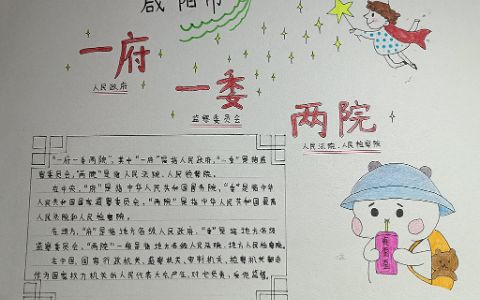 咸阳市
一府
人民政府
一委
监察委员会
两院
人民法院、人民检察院
"一府一委两院",其中"一府"是指人民政府,"一委"是指监
察委员会,"两院"是指人民法院、人民检察院。
在中央,"府"是指中华人民共和国国务院,"委"是指中华
人民共和国国家监察委员会,"两院"是指中华人民共和国最高
人民法院和人民检察院。
在地方,"府"是指地方各级人民政府,"委"是指地方各级
监察委员会,"两院"一般是指地方各级人民法院、地方人民检察院。
在中国,国家行政机关、监察机关、审判机关、检察机关都由
作为国家权力机关的人民代表大会产生,对它负责,受它监督。